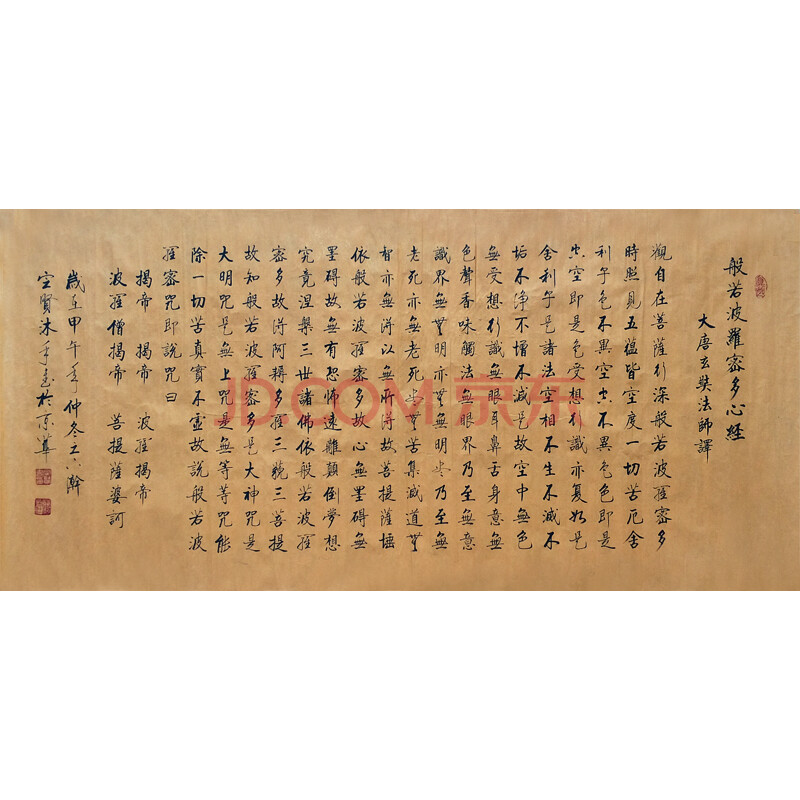 般若波羅密多心経
大唐玄奘法師譯
觀自在菩薩行深般若波羅密多
時照見五蘊皆空度一切苦厄舍
利子色不異空空不異色色即是
空空即是色受想行識亦复如是
舍利子是諸法空相不生不滅不
垢不淨不增不減是故空中無色
無受想行識無眼耳鼻舌身意無
色聲香味觸法無眼界乃至無意
識界無無明亦無無明尽乃至無
老死亦無老死尽無苦集滅道無
智亦無得以無所得故菩提薩埵
依般若波羅密多故心無罣碍無
罣碍故無有恐怖遠離顛倒夢想
究竟涅槃三世諸佛依般若波羅
密多故得阿耨多羅三藐三菩提
故知般若波羅密多是大神咒是
大明咒是無上咒是無等等咒能
除一切苦真實不虛故說般若波
羅密咒即說咒曰
揭帝 揭帝 波羅揭帝
波羅僧揭帝 菩提薩婆訶
歲在甲午年仲冬
空賢沐手書於京華
JD.COM 京东